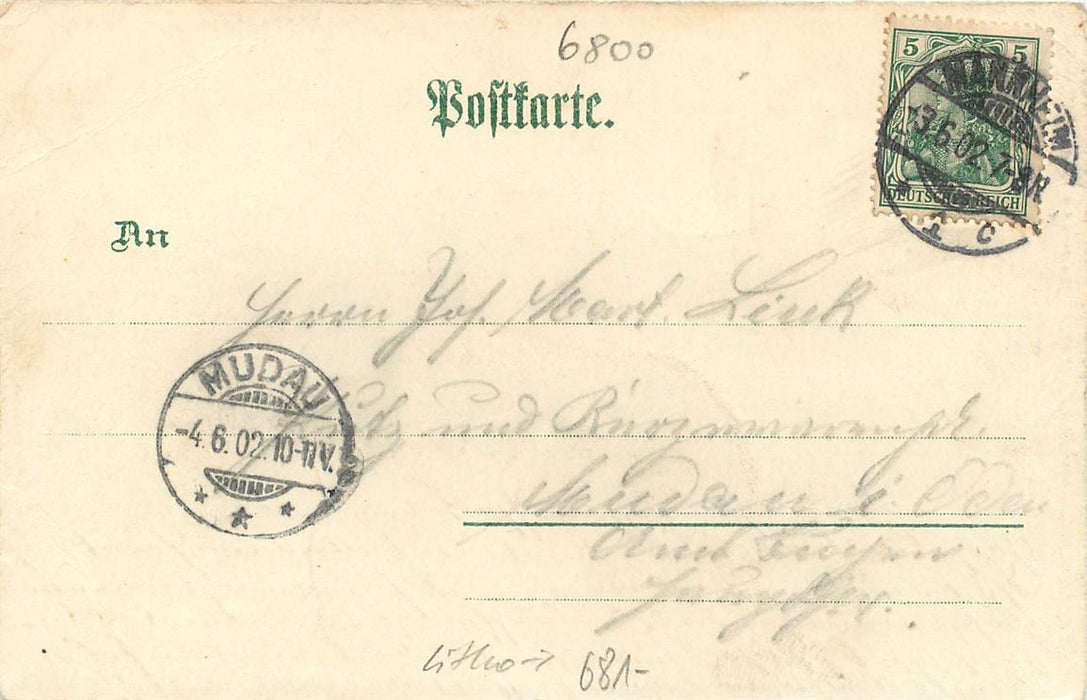 6800
Postkarte.
5 5
MANNHEIM
-3.6.02.7-8N
DEUTSCHES REICH
1 c
An
Herrn Jos. Mart. Link
und Kurzwarengesch.
MUDAU
-4.6.02.10-11V.
Mudau i. Oden
Amt Buchen
Litho
68,-